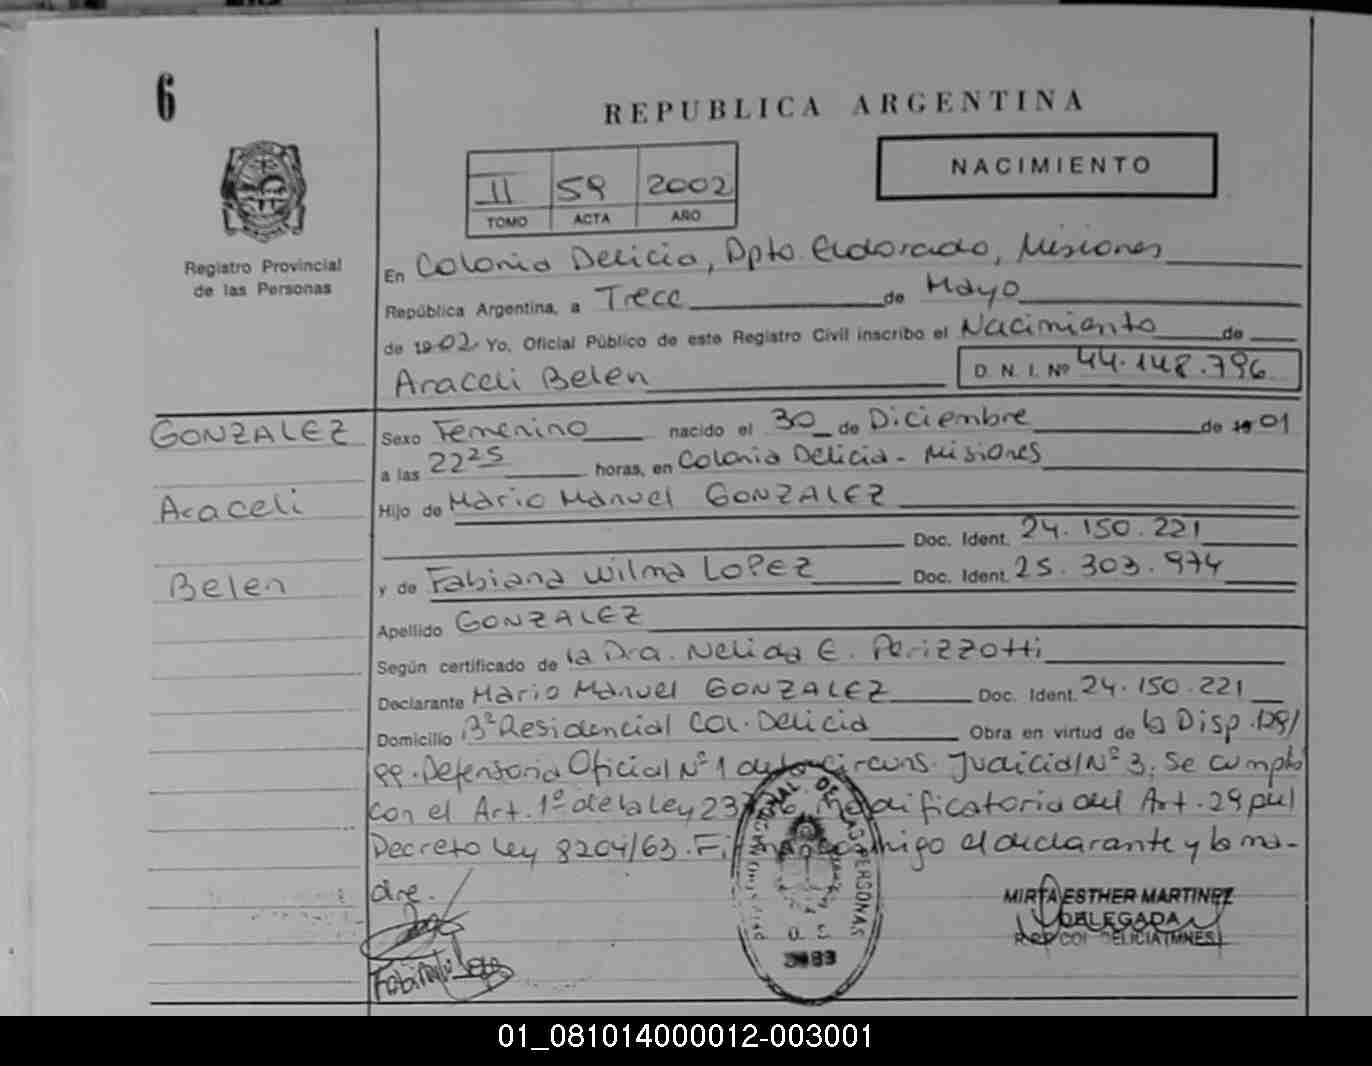 6
REPUBLICA ARGENTINA
NACIMIENTO
II 59 2002
TOMO ACTA AÑO
Registro Provincial
de las Personas
En Colonia Delicia, Dpto. Eldorado, Misiones
República Argentina, a Trece de Mayo
de 1902 Yo, Oficial Público de este Registro Civil inscribo el Nacimiento de
Araceli Belen D. N. I. Nº 44.148.796
GONZALEZ
Araceli
Belen
Sexo Femenino nacido el 30 de Diciembre de 1901
a las 22 25 horas, en Colonia Delicia - Misiones
Hijo de Mario Manuel GONZALEZ
Doc. Ident. 24.150.221
y de Fabiana Wilma LOPEZ Doc. Ident. 25.303.974
Apellido GONZALEZ
Según certificado de la Dra. Nelida E. Perizzotti
Declarante Mario Manuel GONZALEZ Doc. Ident. 24.150.221
Domicilio Bº Residencial Col. Delicia Obra en virtud de la Disp. 129/
99. Defensoria Oficial Nº 1 de la circuns. Judicial Nº 3. Se cumplió
con el Art. 1º de la Ley modificatoria del Art. 29 del
Decreto Ley 8204/63. conmigo el declarante y la ma-
dre.
NACIONAL DE LAS PERSONAS
MIRTA ESTHER MARTINEZ
DELEGADA
DELICIA (MNES)
01_081014000012-003001